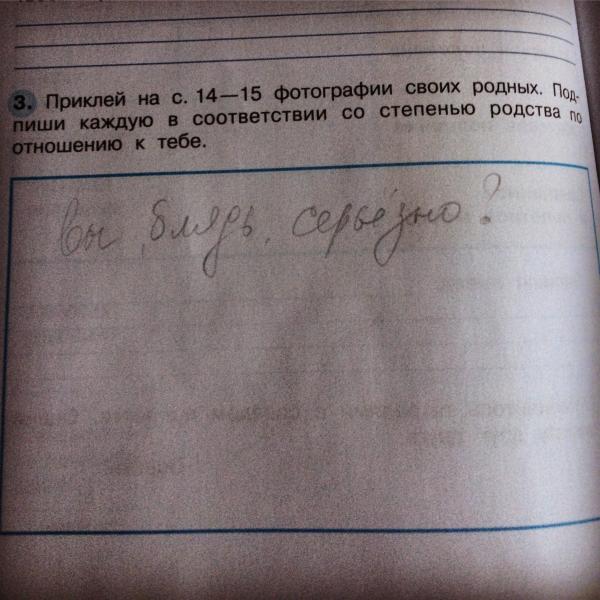 3. Приклей на с. 14—15 фотографии своих родных. Под-
пиши каждую в соответствии со степенью родства по
отношению к тебе.
Вы, блядь, серьёзно?